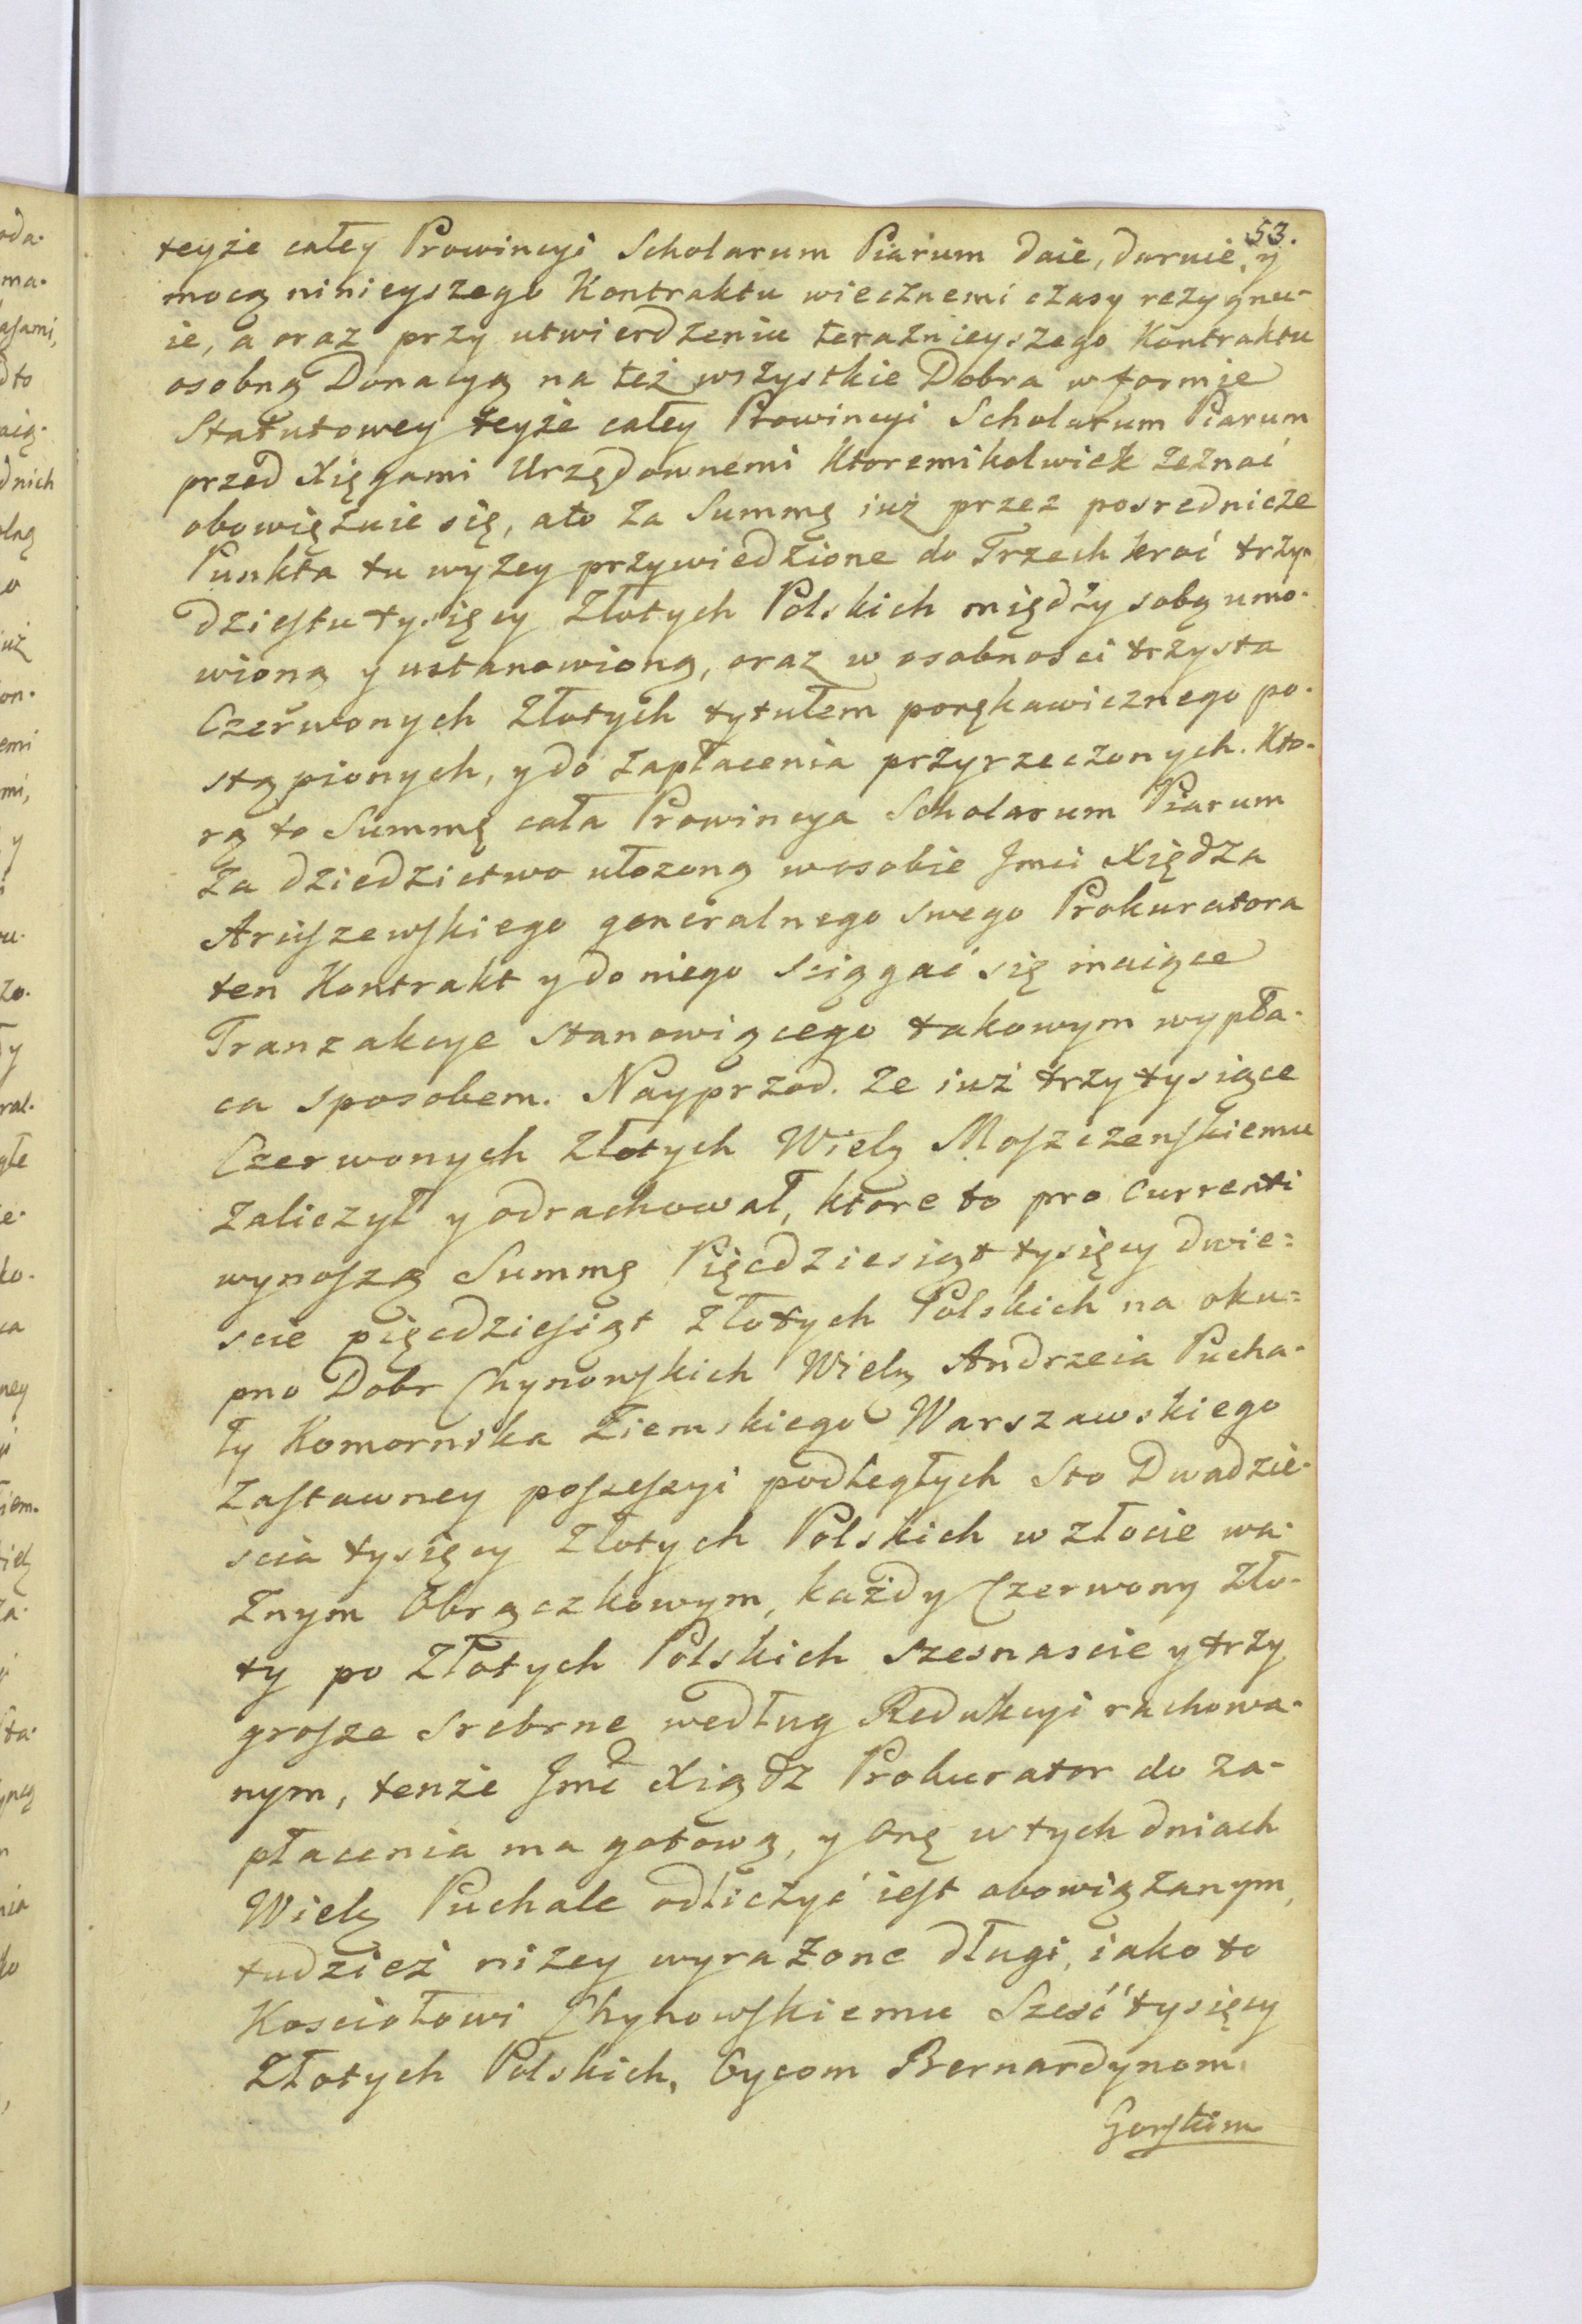 53.
teyże całey Prowincyi Scholarum Piarum daie, daruie, y
mocą niniegszego Kontraktu wiecznemi czasy rezygnu-
ie, a oraz przy utwierdzeniu teraznieyszego Kontraktu
osobną Donacyą na też wszystkie Dobra w formie
Statutowey teyże całey Prowincyi Scholarum Piarum
przed Xięgami Urzędownemi ktoremikolwiek zeznać
obowięzuie się, ato za Summę iuż przez posrednicze
Punkta tu wyżey przywiedzione do Trzech kroć trzy-
dziestu tysięcy Złotych Polskich między sobą umo-
wioną y ustanowioną, oraz w osobności trzysta
Czerwonych Złotych tytułem porękawicznego po-
stąpionych, y do zapłacenia przyrzeczonych. Kto-
rą to Summę cała Prowincya Scholarum Piarum
Za dziedzictwo ułozoną w osobie Jmci Xiędza
Aruszewskiego generalnego swego Prokuratora
ten Kontrakt y do niego sciągać się maiące
Tranzakcye stanowiącego takowym wypła-
ca sposobem. Nayprzod. Ze iuż trzy tysiące
Czerwonych Złotych Wielg Moszczenskiemu
Zaliczył y odrachował, ktore to pro currenti
wynoszą Summę Pięcdziesiąt tysięcy dwie=
scie pięcdziesiąt Złotych Polskich na oku=
pno Dobr Chynowskich Wielg Andrzeia Pucha-
ły Komornika Ziemskiego Warszawskiego
Zastawney possessyi podległych Sto Dwadzie-
scia tysięcy Złotych Polskich w złocie wa-
żnym Obrączkowym, każdy Czerwony Zło-
ty po Złotych Polskich szesnascie y trzy
grosze srebrne według Redukcyi rachowa-
nym, tenże Jmć Xiądz Prokurator do za-
płacenia ma gotową, y onę w tych dniach
Wielg Puchale odliczyć iest obowiązanym,
tudzież niżey wyrażone długi, iako to
Kosciołowi Chynowskiemu Sześć tysięcy
Złotych Polskich, Oycom Bernardynom
Gorskim